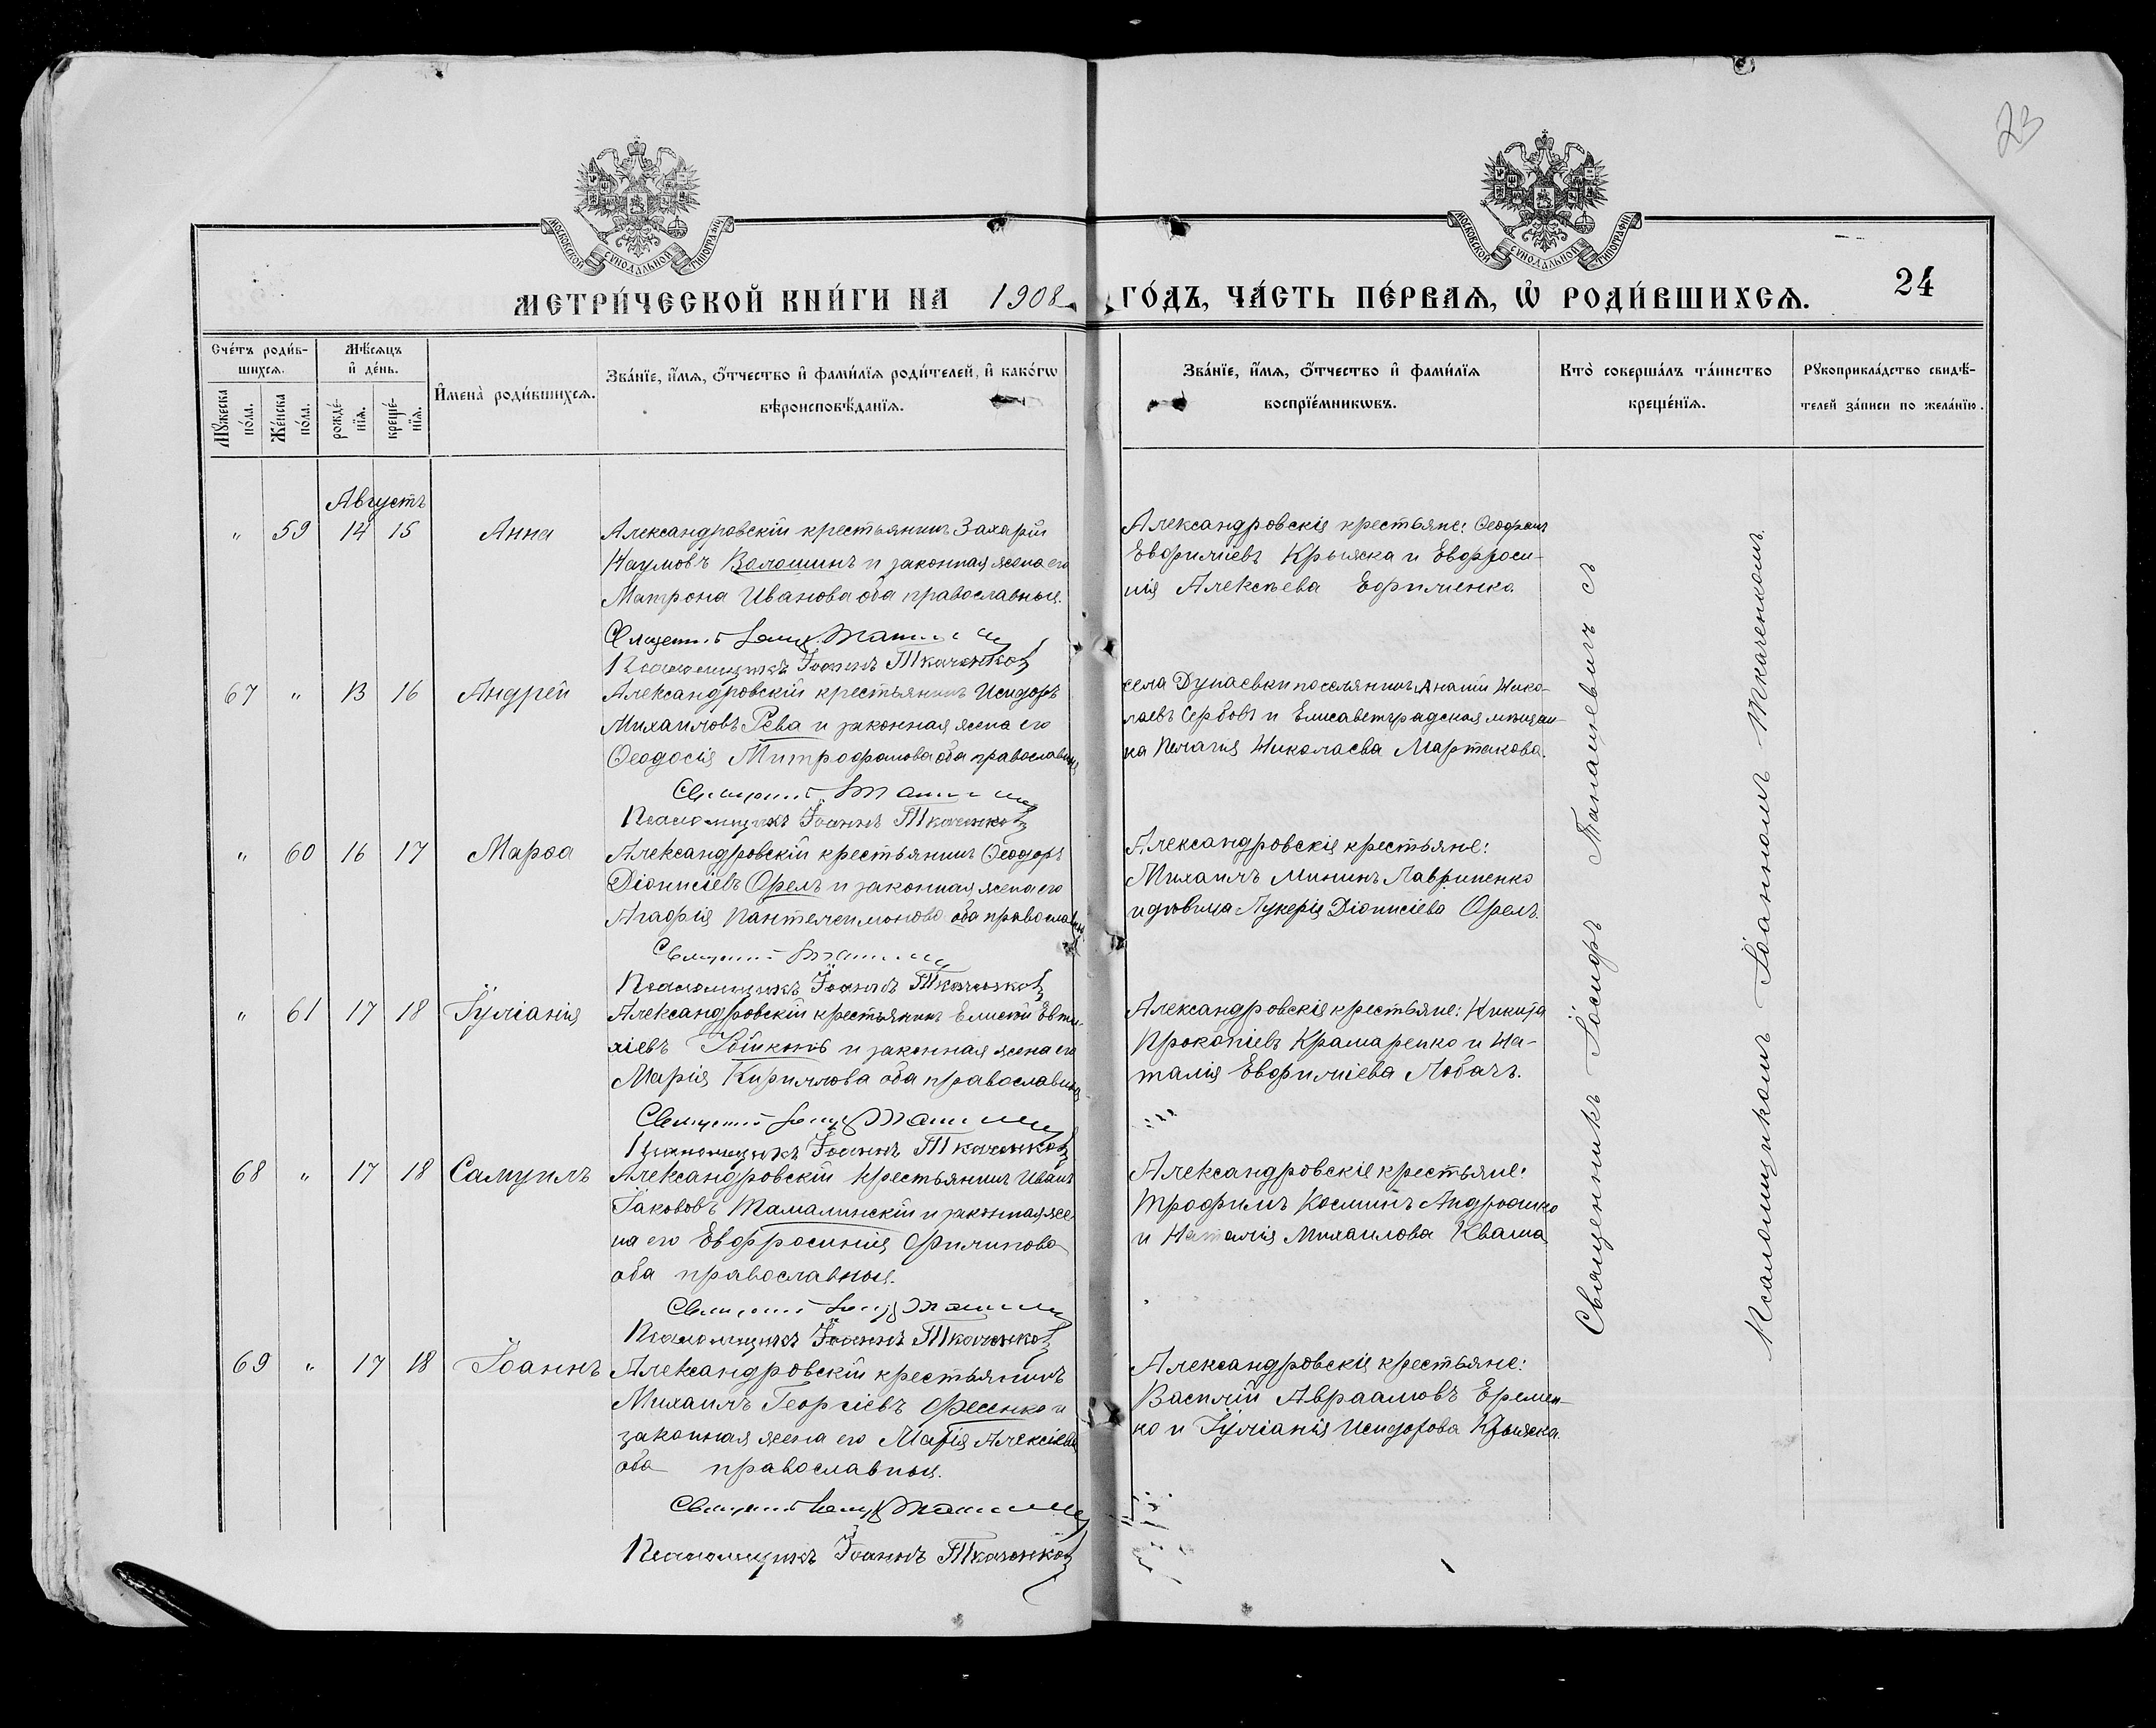 23
МОСКОВСКОЙ СѴНОДАЛЬНОЙ ТИПОГРАФІИ
МОСКОВСКОЙ СѴНОДАЛЬНОЙ ТИПОГРАФІИ
МЕТРИ́ЧЕСКОЙ КНИ́ГИ НА 1908 ГО́ДЪ, ЧА́СТЬ ПЕ́РВАѦ, Ѡ РОДИ́ВШИХСѦ. 24
Сче́тъ роди́в-
шихсѧ.
Мѣ́сѧцъ
и҆ де́нь.
Мꙋ́жеска по́ла.
Же́нска по́ла.
рожде́-
нїѧ.
креще́-
нїѧ.
И҆мена̀ роди́вшихсѧ.
Зва́нїе, и҆́мѧ, ѻ҆́тчество и҆ фами́лїѧ роди́телей, и҆ како́гѡ
вѣроисповѣ́данїѧ.
Зва́нїе, и҆́мѧ, ѻ҆́тчество и҆ фами́лїѧ
воспрїе́мникѡвъ.
Кто̀ соверша́лъ та́инство
креще́нїѧ.
Рꙋкоприкла́дство свидѣ́-
телей за́писи по жела́нїю.
Августъ
" 59 14 15 Анна
Александровскій крестьянинъ Захарій
Наумовъ Волошинъ и законная жена его
Матрона Иванова оба православные.
Псаломщикъ Іоаннъ Ткаченков
Александровскіе крестьяне:
Евфиміевъ Крыжка и Евфроси-
нія Алексѣева Ефименко.
67 " 13 16 Андрей
Александровскій крестьянинъ Исидоръ
Михаиловъ Рева и законная жена его
Ѳеодосія Митрофанова оба православные
Псаломщикъ Іоаннъ Ткаченков
села Дунаевки поселянинъ Ананій Нико-
лаевъ Сербовъ и Елисаветградская мѣщан-
ка Пелагія Николаева Мартакова.
" 60 16 17 Марѳа
Александровскій крестьянинъ Ѳеодоръ
Діонисіевъ Орелъ и законная жена его
Агафія Пантелеимонова оба православные
Псаломщикъ Іоаннъ Ткаченков
Александровскіе крестьяне:
Михаилъ Мининъ Лавриненко
и дѣвица Лукерія Діонисіева Орелъ.
" 61 17 18 Іуліанія
Александровскій крестьянинъ Елисей Евти-
хіевъ и законная жена его
Марія Кириллова оба православные
Псаломщикъ Іоаннъ Ткаченков
Александровскіе крестьяне: Никита
Прокопіевъ Крамаренко и На-
талія Евфиміева Лобачъ.
68 " 17 18 Самуилъ
Александровскій крестьянинъ Иванъ
Іакововъ Тамалинскій и законная же-
на его Евфросинія Филипова
оба православные.
Псаломщикъ Іоаннъ Ткаченков
Александровскіе крестьяне:
Трофимъ Косминъ Андрющенко
и Наталія Михаилова Кваша.
69 " 17 18 Іоаннъ
Александровскій крестьянинъ
Михаилъ Георгіевъ Фесенко и
законная жена его Марія Алексіева
оба православные.
Псаломщикъ Іоаннъ Ткаченков
Александровскіе крестьяне:
Василій Авраамовъ Еремен-
ко и Іуліанія Исидорова Крыжка.
Священникъ Іосифъ Танашевичъ съ
Псаломщикомъ Іоанномъ Ткаченкомъ.